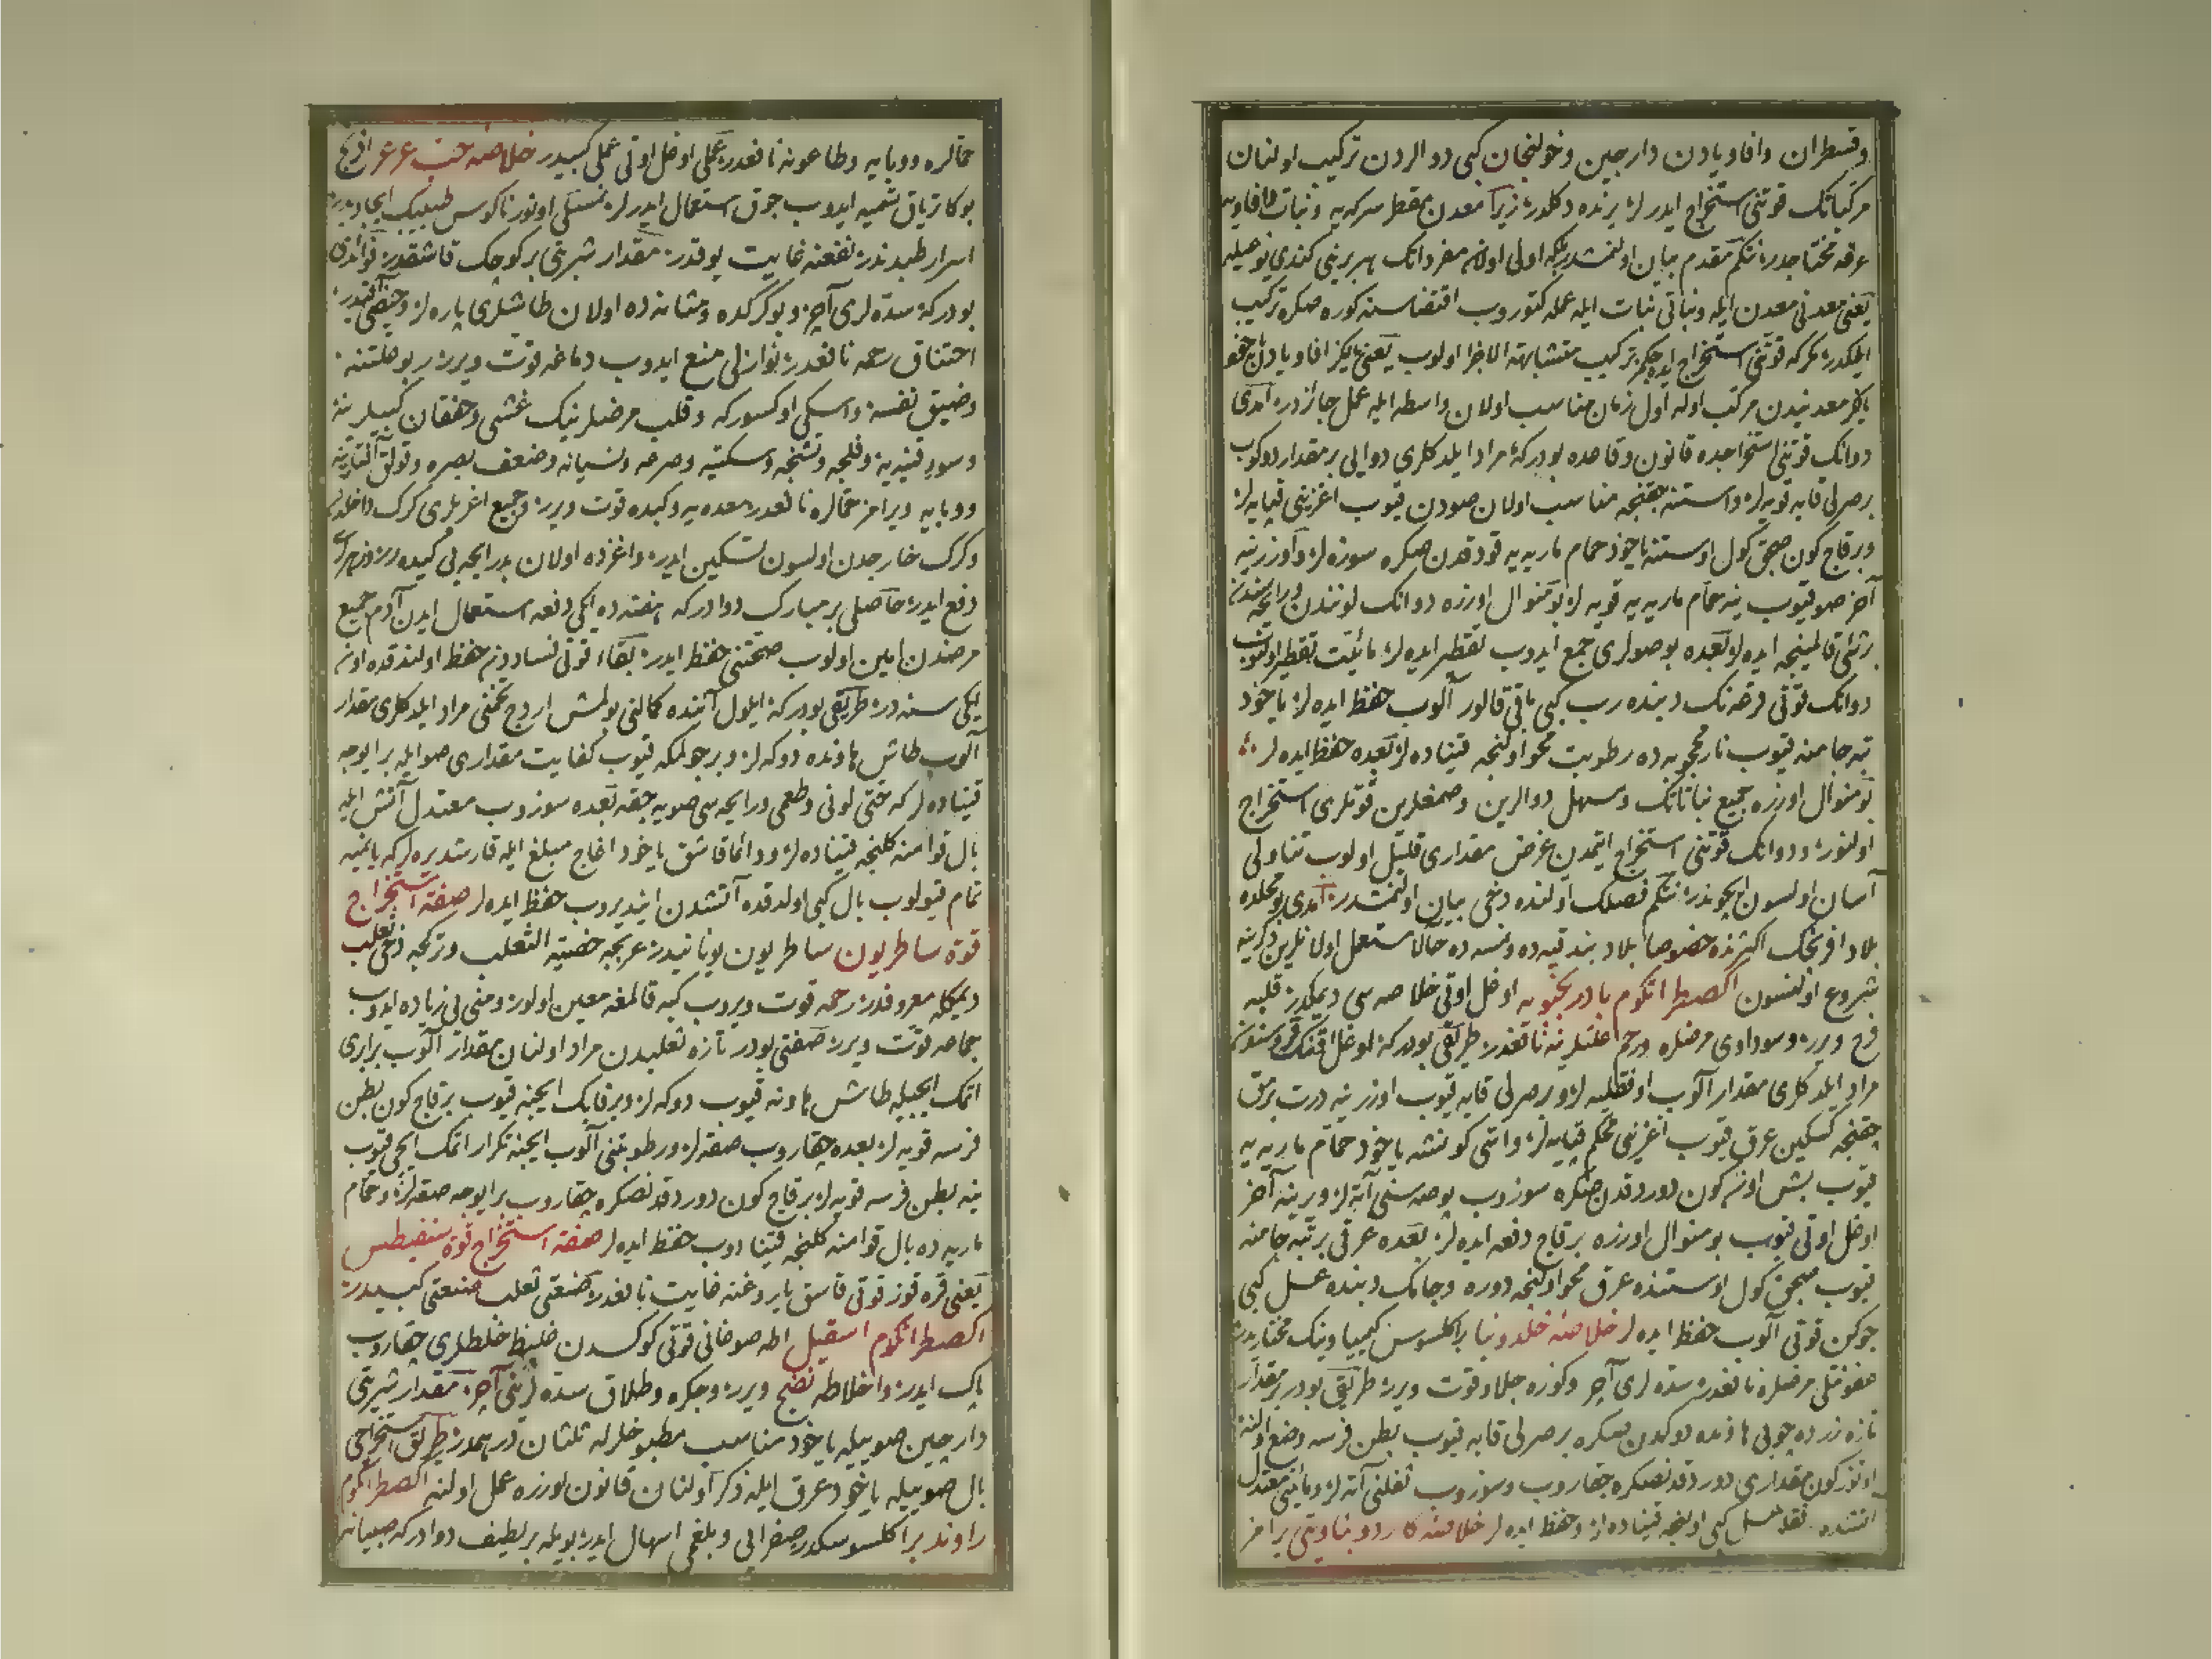 وقسطران وافاويادن دارچين وخولنجان كبى دوالردن تركيب اولنان
مركباتك قوتنى استخراج ايدرلر يرنده دكلدر زيرا معدن مقطر سركه يه ونبات وافاويه
عرقه محتاجدر نتكم مقدم بيان اولنمشدر بلكه اولى اولان مفرداتك هر برينى كندى
يعنى معدنى معدن ايله ونباتى نبات ايله عمله كتوروب اقتضاسنه كوره صكره تركيب
ايلمكدر مكر كه قوتنى استخراج ايده جكلرى تركيب متشابهة الاجزا اولوب يعنى يالكز افاويادن
ياخود معدنيدن مركب اوله اول زمان مناسب اولان واسطه ايله عمل جائزدر امدى
دوانك قوتنى استخراجده قانون وقاعده بودركه مراد ايلدكلرى دوايى بر مقدار دوكوب
بر صرلى قابه قويه لر واستنه چقنجه مناسب اولان صودن قيوب اغزينى قپايه لر
وبر قاچ كون صجق كول اوستنه ياخود حمام ماريه يه قودقدن صكره سوزه لر واوزرينه
آخر صو قيوب ينه حمام ماريه يه قويه لر بو منوال اوزره دوانك لونندن ورايحه سندن
برشى قالمينجه ايده لر بعده بو صولرى جمع ايدوب تقطير ايده لر مائيت تقطير اولنوب
دوانك قوتى قرعه نك دبنده رب كبى باقى قالور آلوب حفظ ايده لر ياخود
تبه جامنه قيوب نار محجوبده رطوبت محو اولنجه قيناده لر بعده حفظ ايده لر
بو منوال اوزره جميع نباتاتك ومسهل دوالرين وصمغلرين قوتلرى استخراج
اولنور ودوانك قوتنى استخراج ايتمدن غرض مقدارى قليل اولوب تناولى
آسان اولسون ايچوندر نتكم فصلك اولنده دخى بيان اولنمشدر امدى بو محلده
بلاد افرنجك اكثرنده خصوصا بلاد بندقيه ده ونمسه ده حالا مستعمل اولانلرين ذكرينه
شروع اولنسون اكصطراتكوم بادرنجبويه اوغل اوتى خلاصه سى ديمكدر قلبه
فرح ويرر وسوداوى مرضلره ورحم علتلرينه نافعدر طريقى بودركه اوغل اوتنك
مراد ايلدكلرى مقدار آلوب اوفقليه لر وبر صرلى قابه قيوب اوزرينه درت برمق
چقنجه كسكين عرق قيوب اغزينى محكم قپايه لر وآتى كونشه ياخود حمام ماريه يه
قيوب بش اون كون دوردقدن صكره سوزوب پوصه سنى آته لر ويرينه آخر
اوغل اوتى قيوب بو منوال اوزره بر قاچ دفعه ايده لر بعده عرقى بر تبه جامنه
قيوب صجق كول اوستنده عرق محو اولنجه دوره وجامك دبنده عسل كبى
چوكن قوتى آلوب حفظ ايده لر خلاصه خلدونيا براكلسوس كيمياوينك مختاريدر
عفونتلى مرضلره نافعدر سده لرى آچر وكوزه جلا وقوت ويرر طريقى بودر بر مقدار
تازه زرده چوبى هاونده دوكدن صكره بر صرلى قابه قيوب بطن فرسه وضع اولنه
اوتوز كون مقدارى دوردقدنصكره چقاروب وسوزوب ثفلنى آته لر ومائنى معتدل
آتشده تقلا عسل كبى اولنجه قيناده لر وحفظ ايده لر خلاصه كاردو بناديقتى پرامز
حمالره ووبايه وطاعونه نافعدر عملى اوغل اوتى عملى كبيدر خلاصه حب عرعر افرنج
بوكا ترياق تسميه ايدوب چوق استعمال ايدرلر طبيبك ايجاديدر
اسرار طبدندر نفعنه غايت يوقدر مقدار شربتى بر كوچك قاشقدر فوائدى
بودركه سده لرى آچر وبوكركده ومثانه ده اولان طاشلرى پاره لر
اختناق رحمه نافعدر نوازلى منع ايدوب دماغه قوت ويرر ربو علتنه
وضيق نفسه واسكى اوكسوركه وقلب مرضلرينك غشى وخفقان كبيلرينه
وسوء قنيه يه وفلجه وتشنجه وسكته يه وصرعه ونسيانه وضعف بصره وقولاق
ووبايه ويرامز حمالره نافعدر معده يه وكبده قوت ويرر وجميع اغريلرى كرك داخلدن
وكرك خارجدن اولسون تسكين ايدر واغزده اولان بد رايحه يى كيده رر
دفع ايدر حاصلى بر مبارك دوادركه هفته ده ايكى دفعه استعمال ايدن آدم جميع
مرضدن امين اولوب صحتنى حفظ ايدر بقاء قوتى فساددن حفظ اولندقده اون
ايكى سنه در طريقى بودركه ايلول آينده كمالنى بولمش اردج تخمنى مراد ايلدكلرى مقدار
آلوب طاش هاونده دوكه لر وبر چولمكه قيوب كفايت مقدارى صو ايله بر ايوجه
قيناده لر كه حتى لونى وطعمى ورايحه سى صويه چقه بعده سوزوب معتدل آتش ايله
بال قوامنه كلنجه قيناده لر ودائما قاشق ياخود اغاج مبلغ ايله قارشديره لر كه يانميه
تمام قيولوب بال كبى اولدقده آتشدن اينديروب حفظ ايده لر صفة استخراج
قوة ساطريون ساطريون يونانيدر عربجه خصية الثعلب وتركجه دخى ثعلب
ديمكله معروفدر رحمه قوت ويروب كبه قالمغه معين اولور ومنى يى زياده ايدوب
جماعه قوت ويرر صفتى بودر تازه ثعلبدن مراد اولنان مقدار آلوب برابرى
اتمك ايچيله طاش هاونه قيوب دوكه لر وبر قابك ايچنه قيوب بر قاچ كون بطن
فرسه قويه لر بعده چقاروب صقه لر ورطوبتنى آلوب ايچنه تكرار اتمك ايچى قيوب
ينه بطن فرسه قويه لر بر قاچ كون دوردقدنصكره چقاروب بر ايوجه صقه لر وحمام
ماريه ده بال قوامنه كلنجه قيندادوب حفظ ايده لر صفة استخراج قوة سنفيطس
يعنى قره قوز قوتى قاسق ياريغنه غايت نافعدر صنعتى ثعلب صنعتى كبيدر
اكصطراتكوم اسقيل اطه صوغانى قوتى كوكسدن غليظ خلطلرى چقاروب
پاك ايدر واخلاطه نضج ويرر وجكره وطلاق سده لرينى آچر مقدار شربتى
دارچين صوييله ياخود مناسب مطبوخلرله ثلثان درهمدر طريق استخراجى
بال صوييله ياخود عرق ايله ذكر اولنان قانون اوزره عمل اولنه اكصطراتكوم
راوند براكلسوسكدر صفرايى وبلغمى اسهال ايدر بويله بر لطيف دوادركه صبيانه